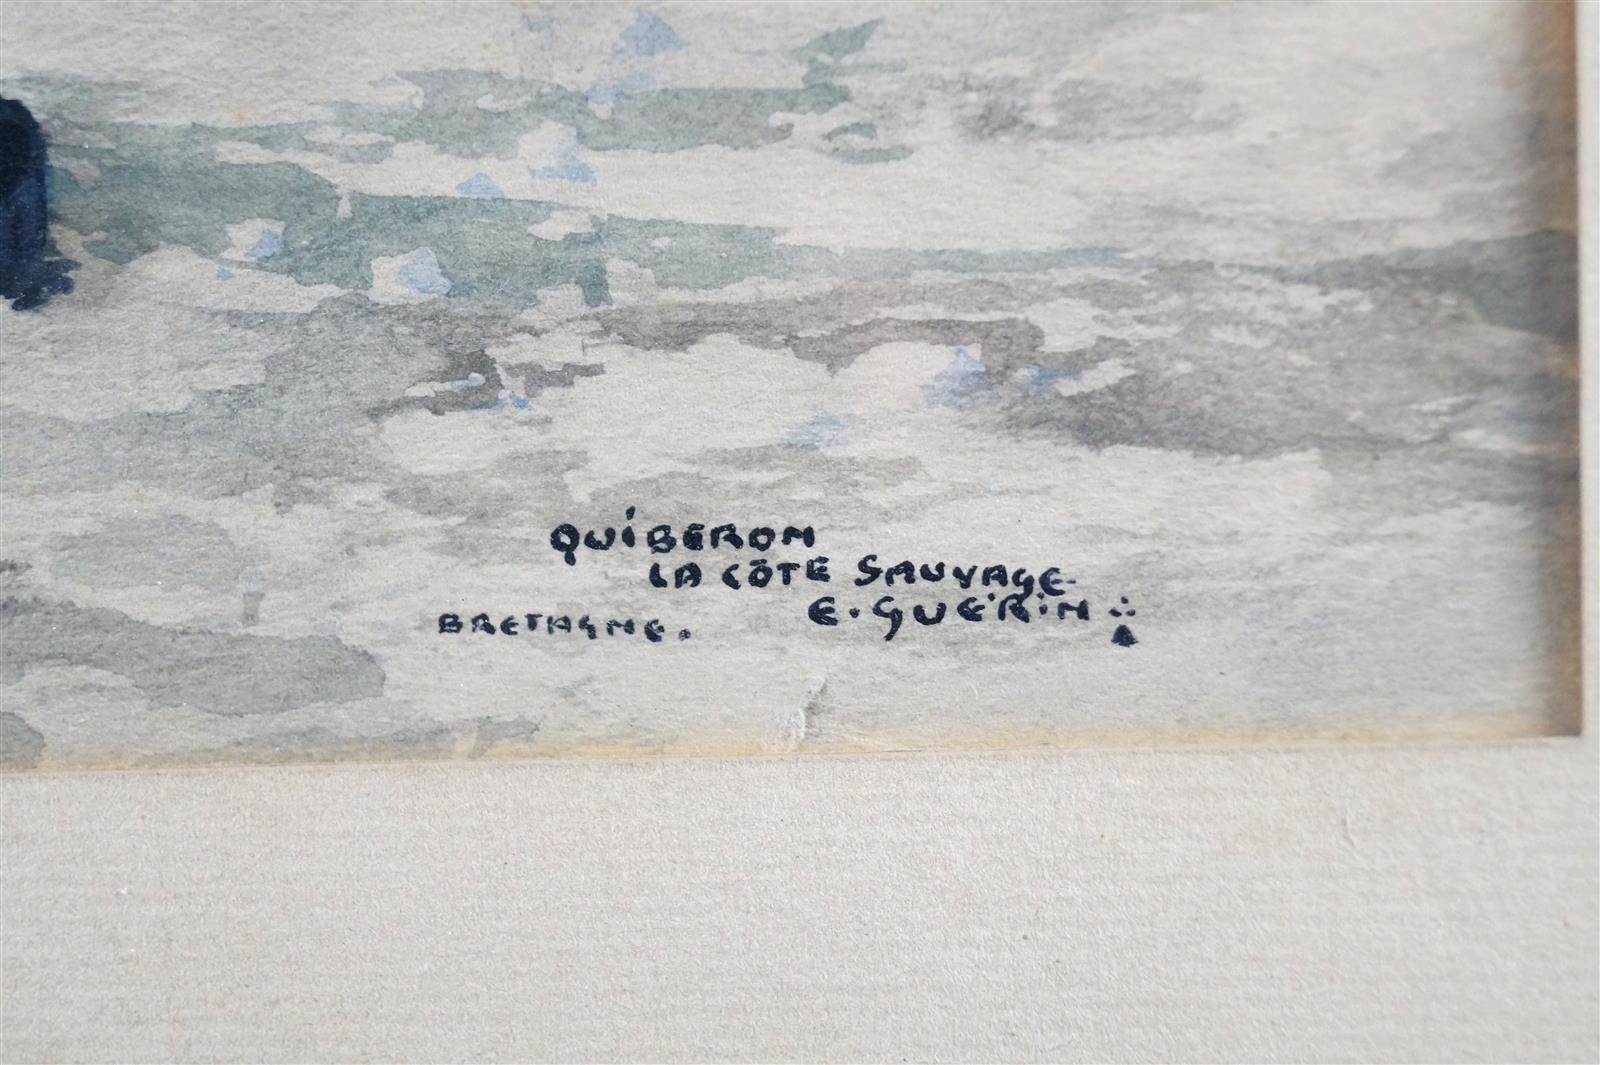 QUIBERON
LA CÔTE SAUVAGE
BRETAGNE. E. GUÉRIN